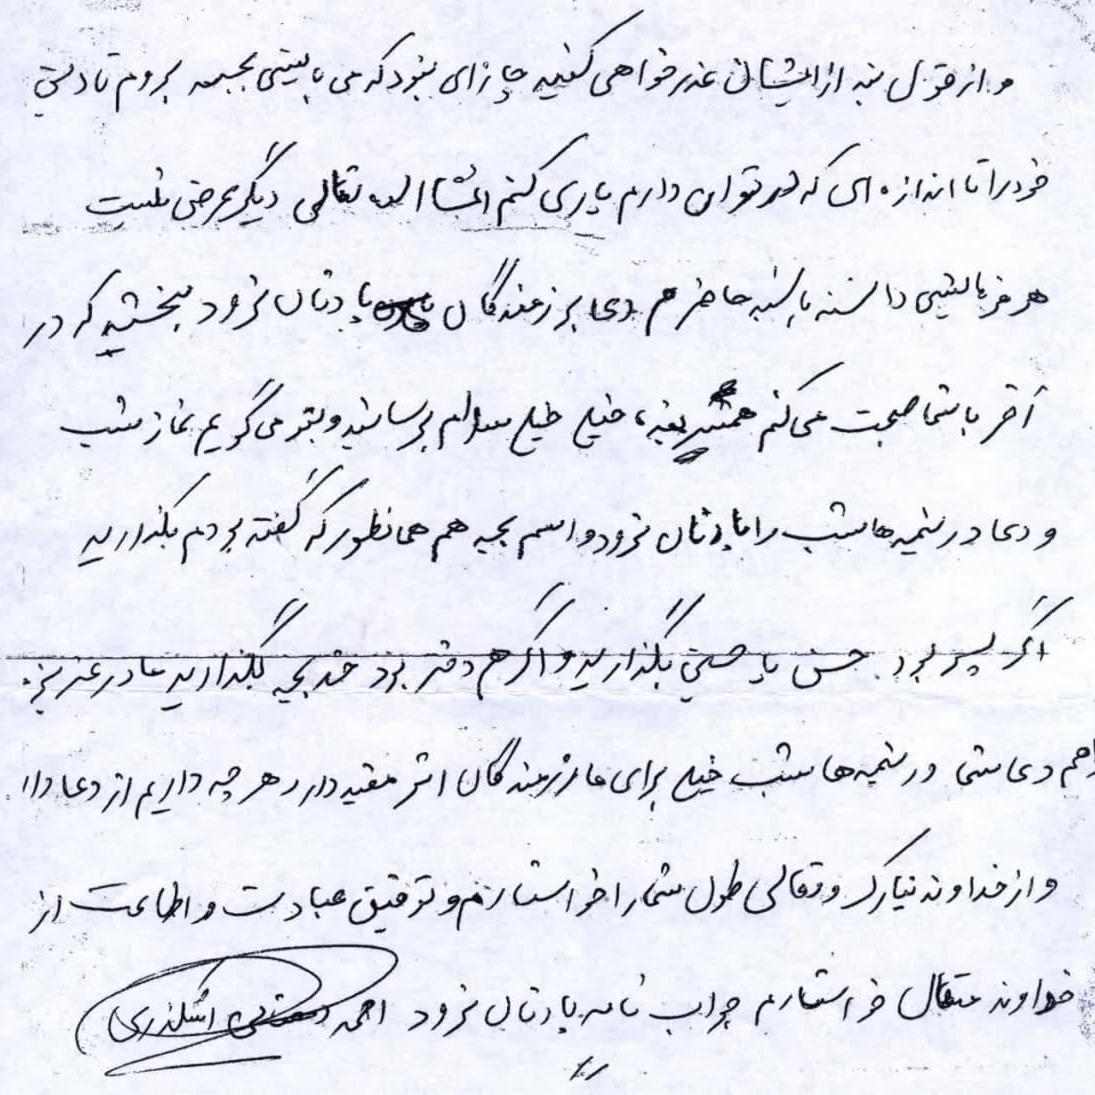 و از قول بنده از ایشان عذرخواهی کنید چاره‌ای نبود که می بایستی بجبهه بروم تا دین
خود را تا اندازه‌ای که در توان دارم یاری کنم انشاالله تعالی دیگر عرضی نیست
هر فرمایشی داشته باشید حاضرم دعا بر رزمندگان یادتان نرود ببخشید که در
آخر با شما صحبت می‌کنم خیلی خیلی سلام برسانید و بتو می گویم نماز شب
و دعا در نیمه‌ها شب را یادتان نرود و اسم بچه هم همانطور که گفته بودم بگذارید
اگر پسر بود حسن یا حسین بگذارید و اگر هم دختر بود خدیجه بگذارید مادر عزیز
هم دعا شما در نیمه‌ها شب خیلی برای ما رزمندگان اثر مفید دارد هر چه داریم از دعا
و از خداوند تبارک و تعالی طول شما را خواستارم و توفیق عبادت و اطاعت از
خداوند متعال خواستارم جواب نامه یادتان نرود احمد